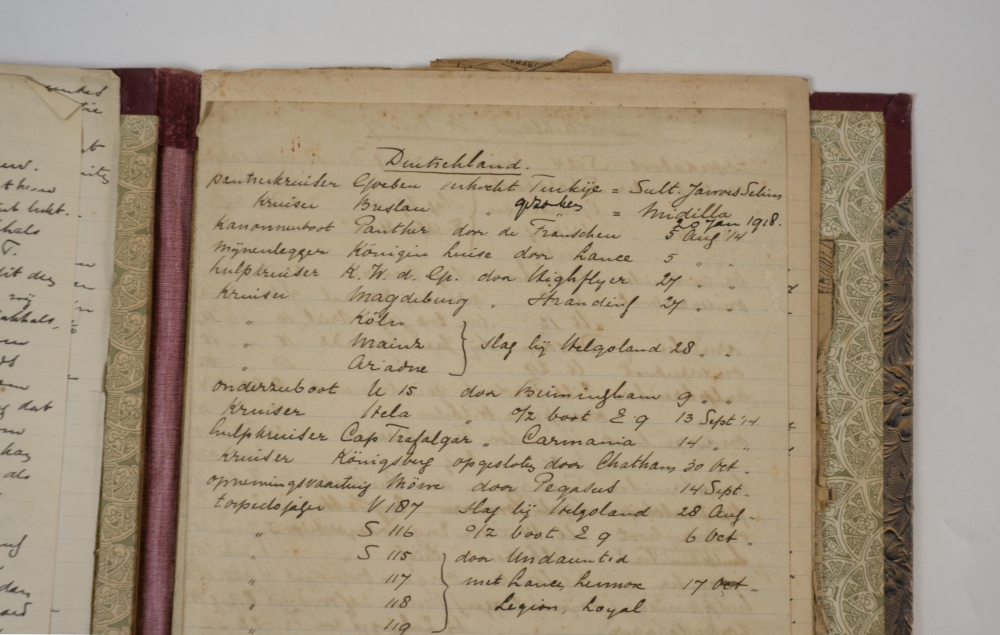 Deutschland.
pantserkruiser Goeben verkocht Turkije = Sult. Jawoes Selim
kruiser Breslau " gezonken = Midilla 20 Jan 1918.
kanonneerboot Panther door de Franschen 5 Aug '14
mijnenlegger Königin Luise door Lance 5 " "
hulpkruiser K. W. d. Gr. door Highflyer 27 " "
kruiser Magdeburg " Stranding 27 " "
" Köln
" Mainz } slag bij Helgoland 28 " "
" Ariadne
onderzeeboot U 15 door Birmingham 9 " "
kruiser Hela " o/z boot E 9 13 Sept '14
hulpkruiser Cap Trafalgar " Carmania 14 " "
kruiser Königsberg opgesloten door Chatham 30 Oct "
opnemingsvaartuig Möwe door Pegasus 14 Sept.
torpedojager V 187 slag bij Helgoland 28 Aug.
" S 116 o/z boot E 9 6 Oct "
" S 115 } door Undaunted
" 117 met Lance, Lennox 17 Oct "
" 118 Legion, Loyal
" 119